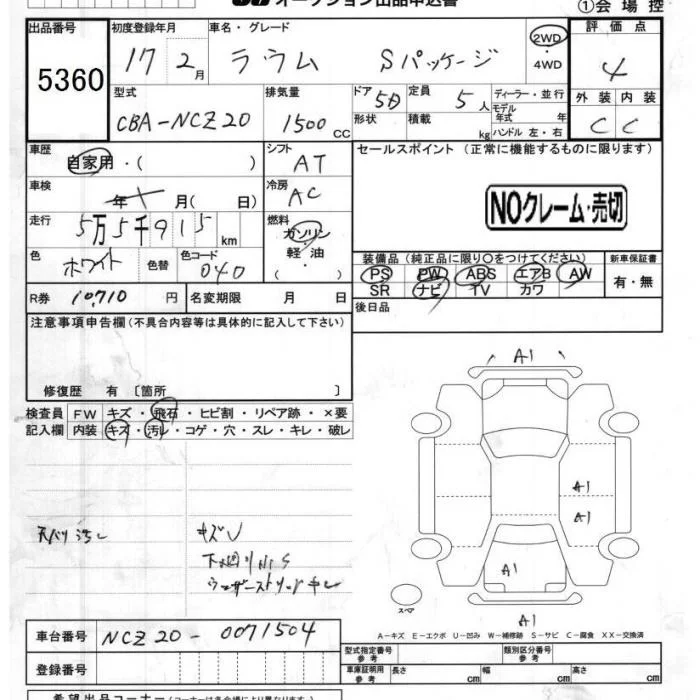 オークション出品申込書
①会場控
出品番号 初度登録年月 車名・グレード 評価点
5360 17 2月 ラウム Sパッケージ 2WD・4WD 4
型式 排気量 ドア 5D 定員 5人 ディーラー・並行 外装 内装
CBA-NCZ20 1500cc 形状 積載 kg モデル年式 年 ハンドル 左・右 C C
車歴 自家用・( ) シフト AT セールスポイント (正常に機能するものに限ります)
車検 年 月( 日) 冷房 AC
NOクレーム・売切
走行 5万5千915km 燃料 ガソリン・軽油・( )
色 ホワイト 色替 色コード 040
装備品(純正品に限り○をつけてください) 新車保証書
PS PW ABS エアB AW 有・無
SR ナビ TV カワ
R券 10,710円 名変期限 月 日 後日品
注意事項申告欄(不具合内容等は具体的に記入して下さい)
修復歴 有〔箇所 〕
検査員 FW キズ・飛石・ヒビ割・リペア跡・×要
記入欄 内装 キズ・汚レ・コゲ・穴・スレ・キレ・破レ
A1
A1
A1
天バリ汚レ キズV
下廻リ小S
ウェザーストリップキレ
A1
スペア
A1
A-キズ E-エクボ U-凹み W-補修跡 S-サビ C-腐食 XX-交換済
車台番号 NCZ20-0071504
型式指定番号参考 類別区分番号参考
登録番号 車庫証明用参考 長さ cm 幅 cm 高さ cm
希望出品コーナー(コーナーは各会場により異なります)